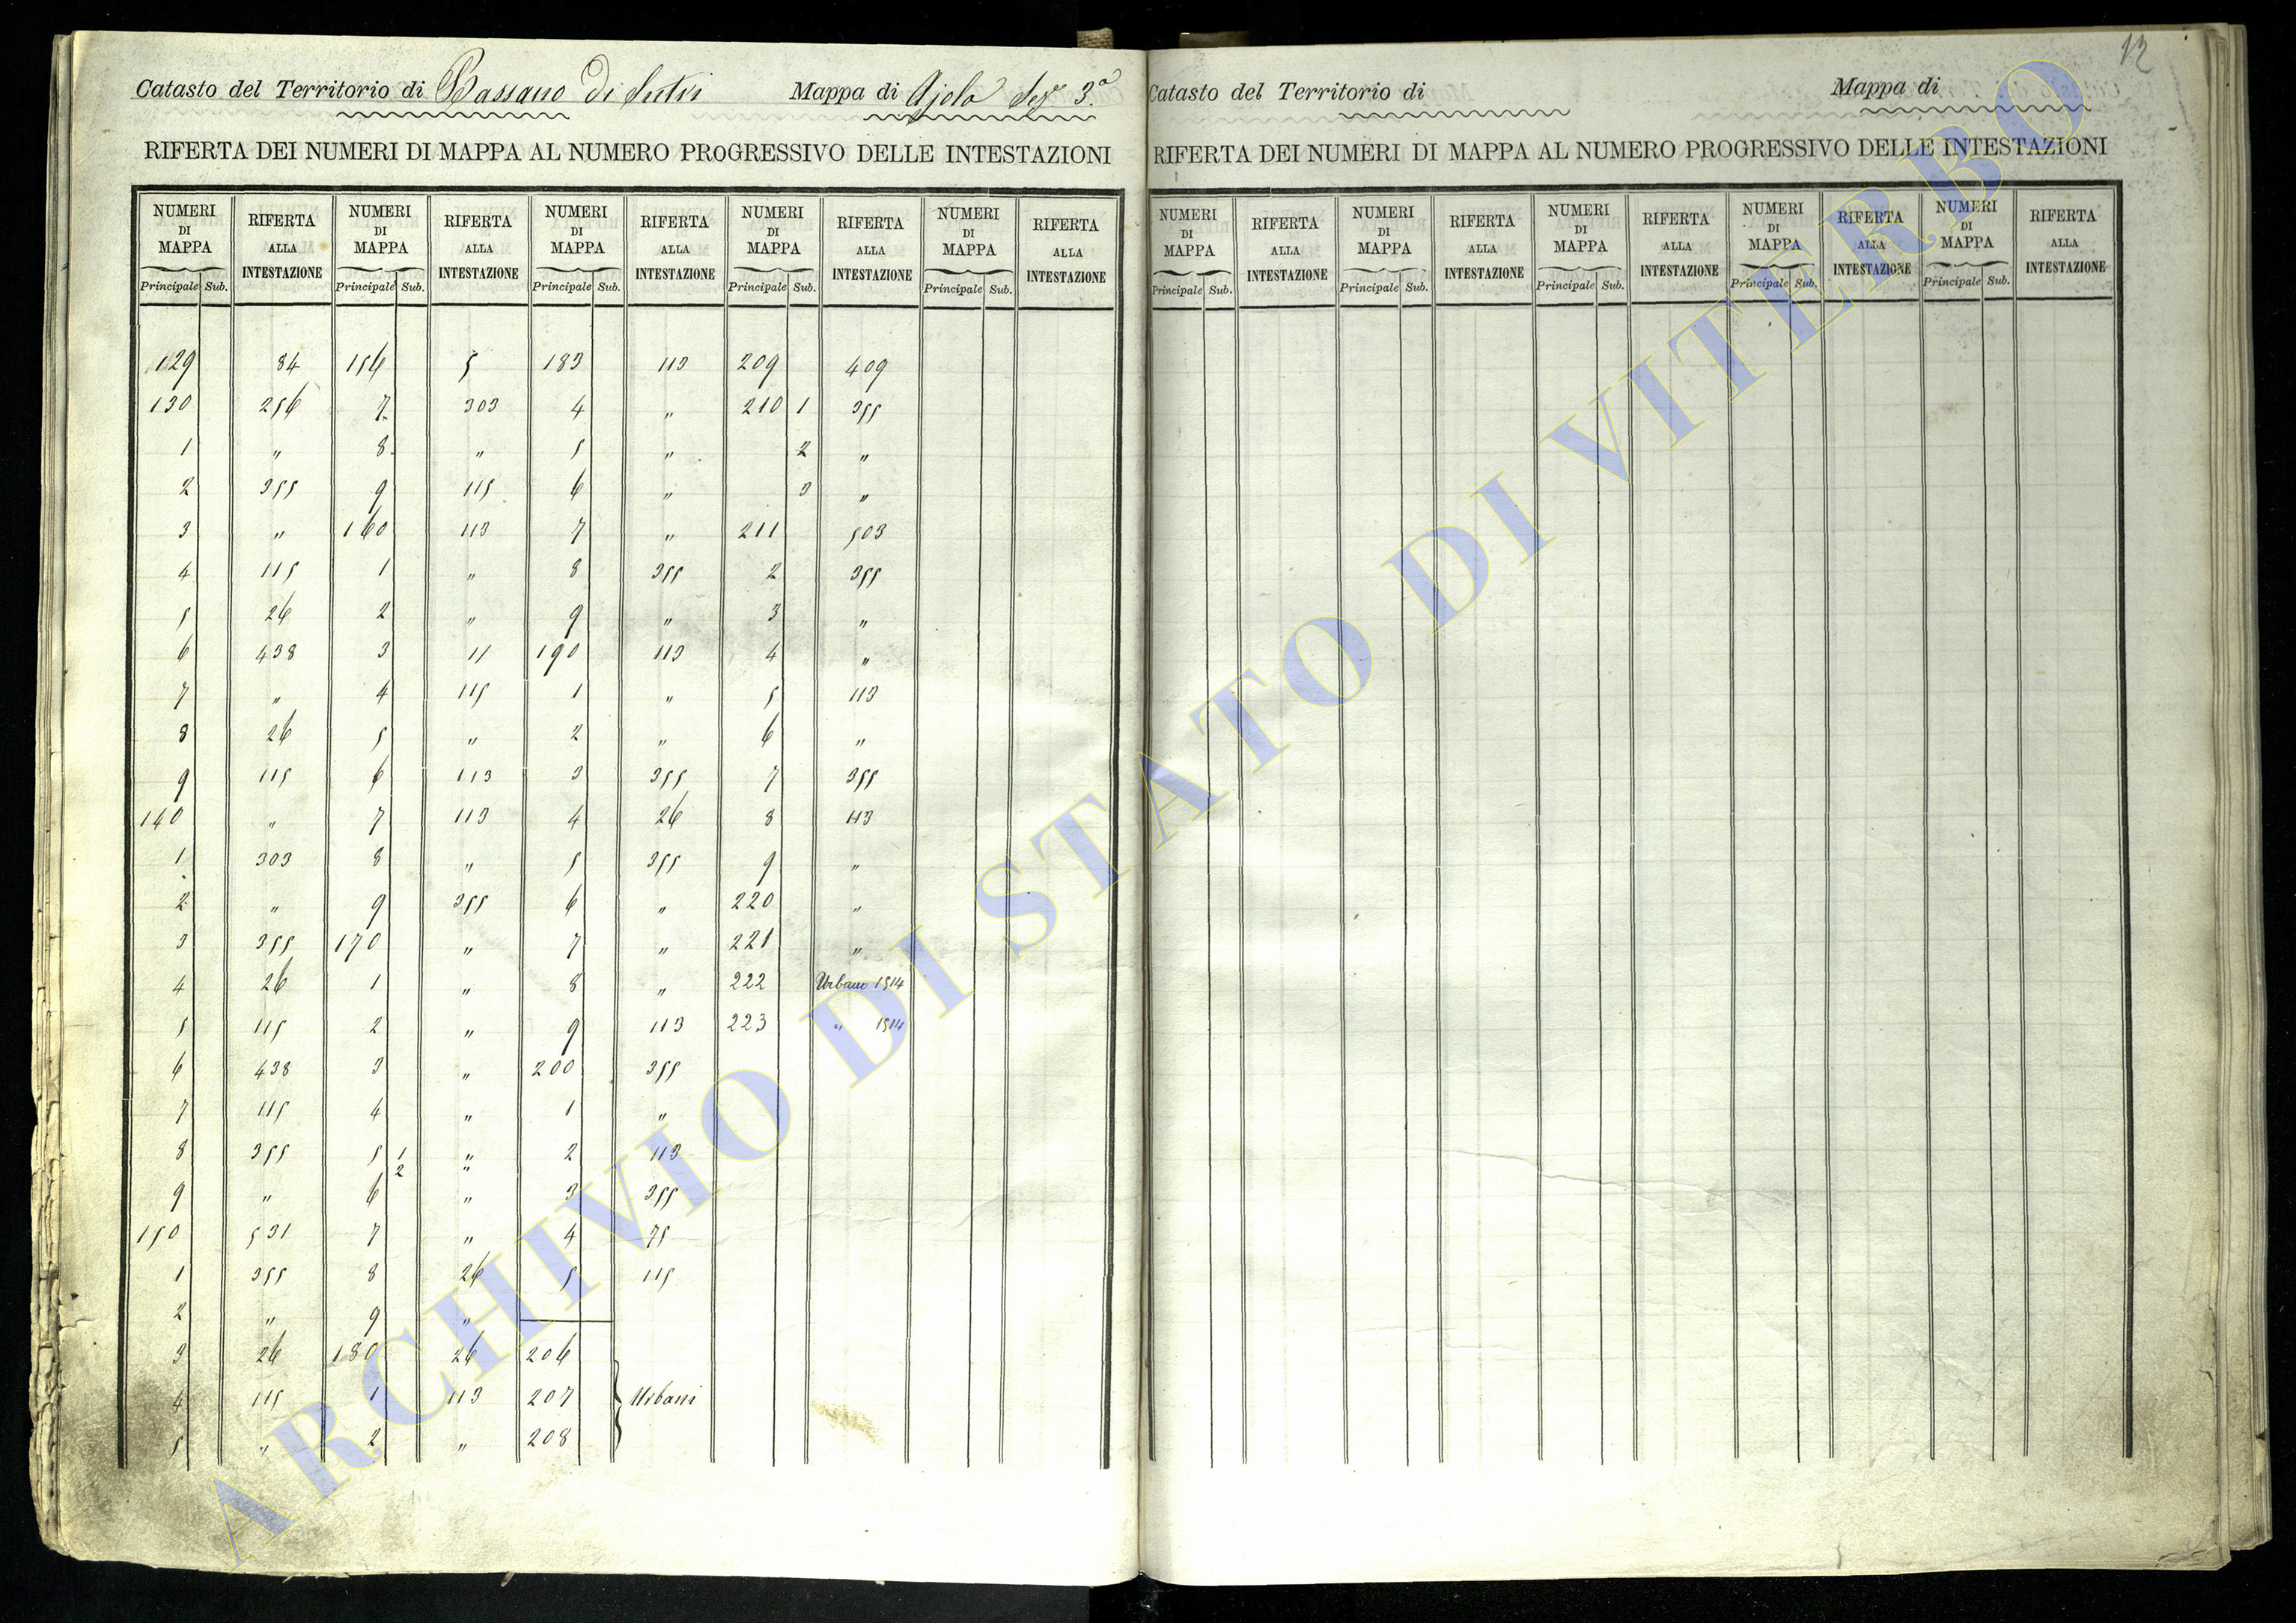 12
Catasto del Territorio di Bassano di Sutri Mappa di Ajola Sez. 3.a
RIFERTA DEI NUMERI DI MAPPA AL NUMERO PROGRESSIVO DELLE INTESTAZIONI
NUMERI DI MAPPA RIFERTA ALLA INTESTAZIONE NUMERI DI MAPPA RIFERTA ALLA INTESTAZIONE NUMERI DI MAPPA RIFERTA ALLA INTESTAZIONE NUMERI DI MAPPA RIFERTA ALLA INTESTAZIONE NUMERI DI MAPPA RIFERTA ALLA INTESTAZIONE
Principale Sub. Principale Sub. Principale Sub. Principale Sub. Principale Sub.
129 84 156 5 183 113 209 409
130 256 7 303 4 " 210 1 355
1 " 8 " 5 " 2 "
2 355 9 115 6 " 3 "
3 " 160 113 7 " 211 503
4 115 1 " 8 355 2 355
5 26 2 " 9 " 3 "
6 438 3 11 190 113 4 "
7 " 4 115 1 " 5 113
8 26 5 " 2 " 6 "
9 115 6 113 3 355 7 355
140 " 7 113 4 26 8 113
1 303 8 " 5 355 9 "
2 " 9 355 6 " 220 "
3 355 170 " 7 " 221 "
4 26 1 " 8 " 222 Urbano 1514
5 115 2 " 9 113 223 " 1514
6 438 3 " 200 355
7 115 4 " 1 "
8 355 5 1 " 2 113
2 "
9 " 6 " 3 355
150 531 7 " 4 75
1 355 8 26 5 115
2 " 9 "
3 26 180 26 206
4 115 1 113 207 Urbani
5 " 2 " 208
Catasto del Territorio di Mappa di
RIFERTA DEI NUMERI DI MAPPA AL NUMERO PROGRESSIVO DELLE INTESTAZIONI
NUMERI DI MAPPA RIFERTA ALLA INTESTAZIONE NUMERI DI MAPPA RIFERTA ALLA INTESTAZIONE NUMERI DI MAPPA RIFERTA ALLA INTESTAZIONE NUMERI DI MAPPA RIFERTA ALLA INTESTAZIONE NUMERI DI MAPPA RIFERTA ALLA INTESTAZIONE
Principale Sub. Principale Sub. Principale Sub. Principale Sub. Principale Sub.
ARCHIVIO DI STATO DI VITERBO